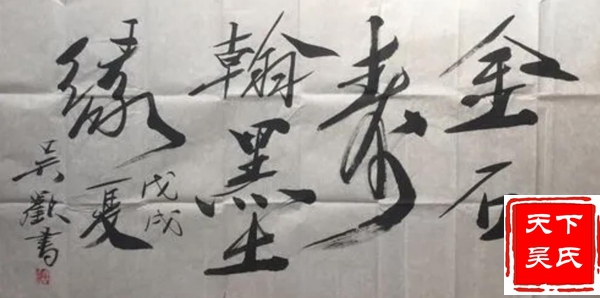 金石
寿
翰墨
緣
戊戌
夏
吴歡書
天下
吴氏